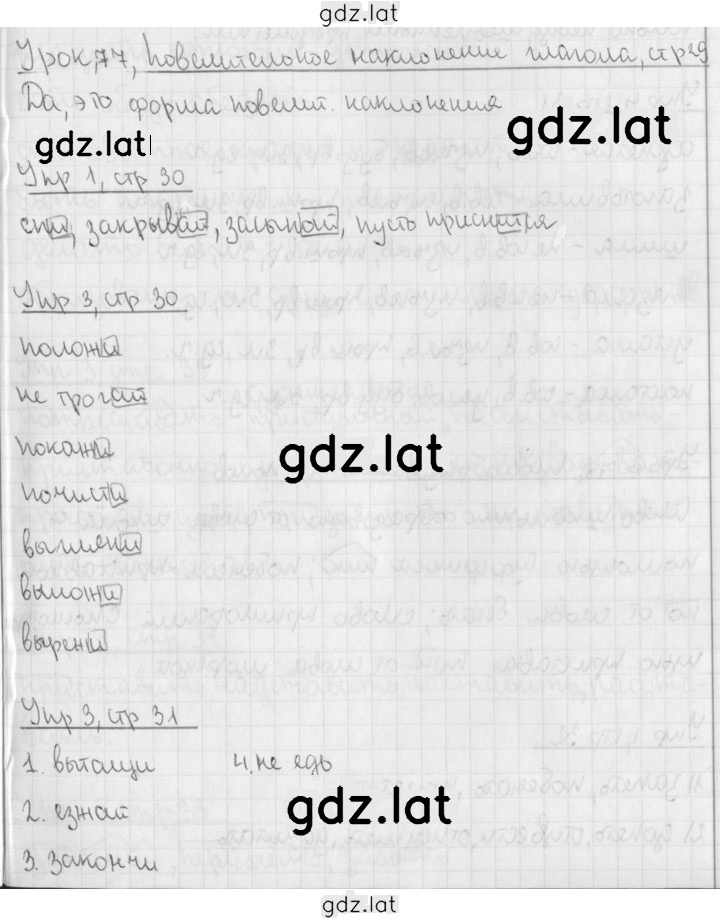 gdz.lat
Урок 77, Повелительное наклонение глагола, стр 29
Да, это форма повелит. наклонения
gdz.lat
gdz.lat
Упр 1, стр 30
спи, закрывай, засыпай, пусть приснится
Упр 3, стр 30
положи
не трогай
покажи
gdz.lat
почисти
выгляни
выложи
вырежи
Упр 3, стр 31
1. вытащи 4. не едь
2. езжай
gdz.lat
3. закончи
gdz.lat